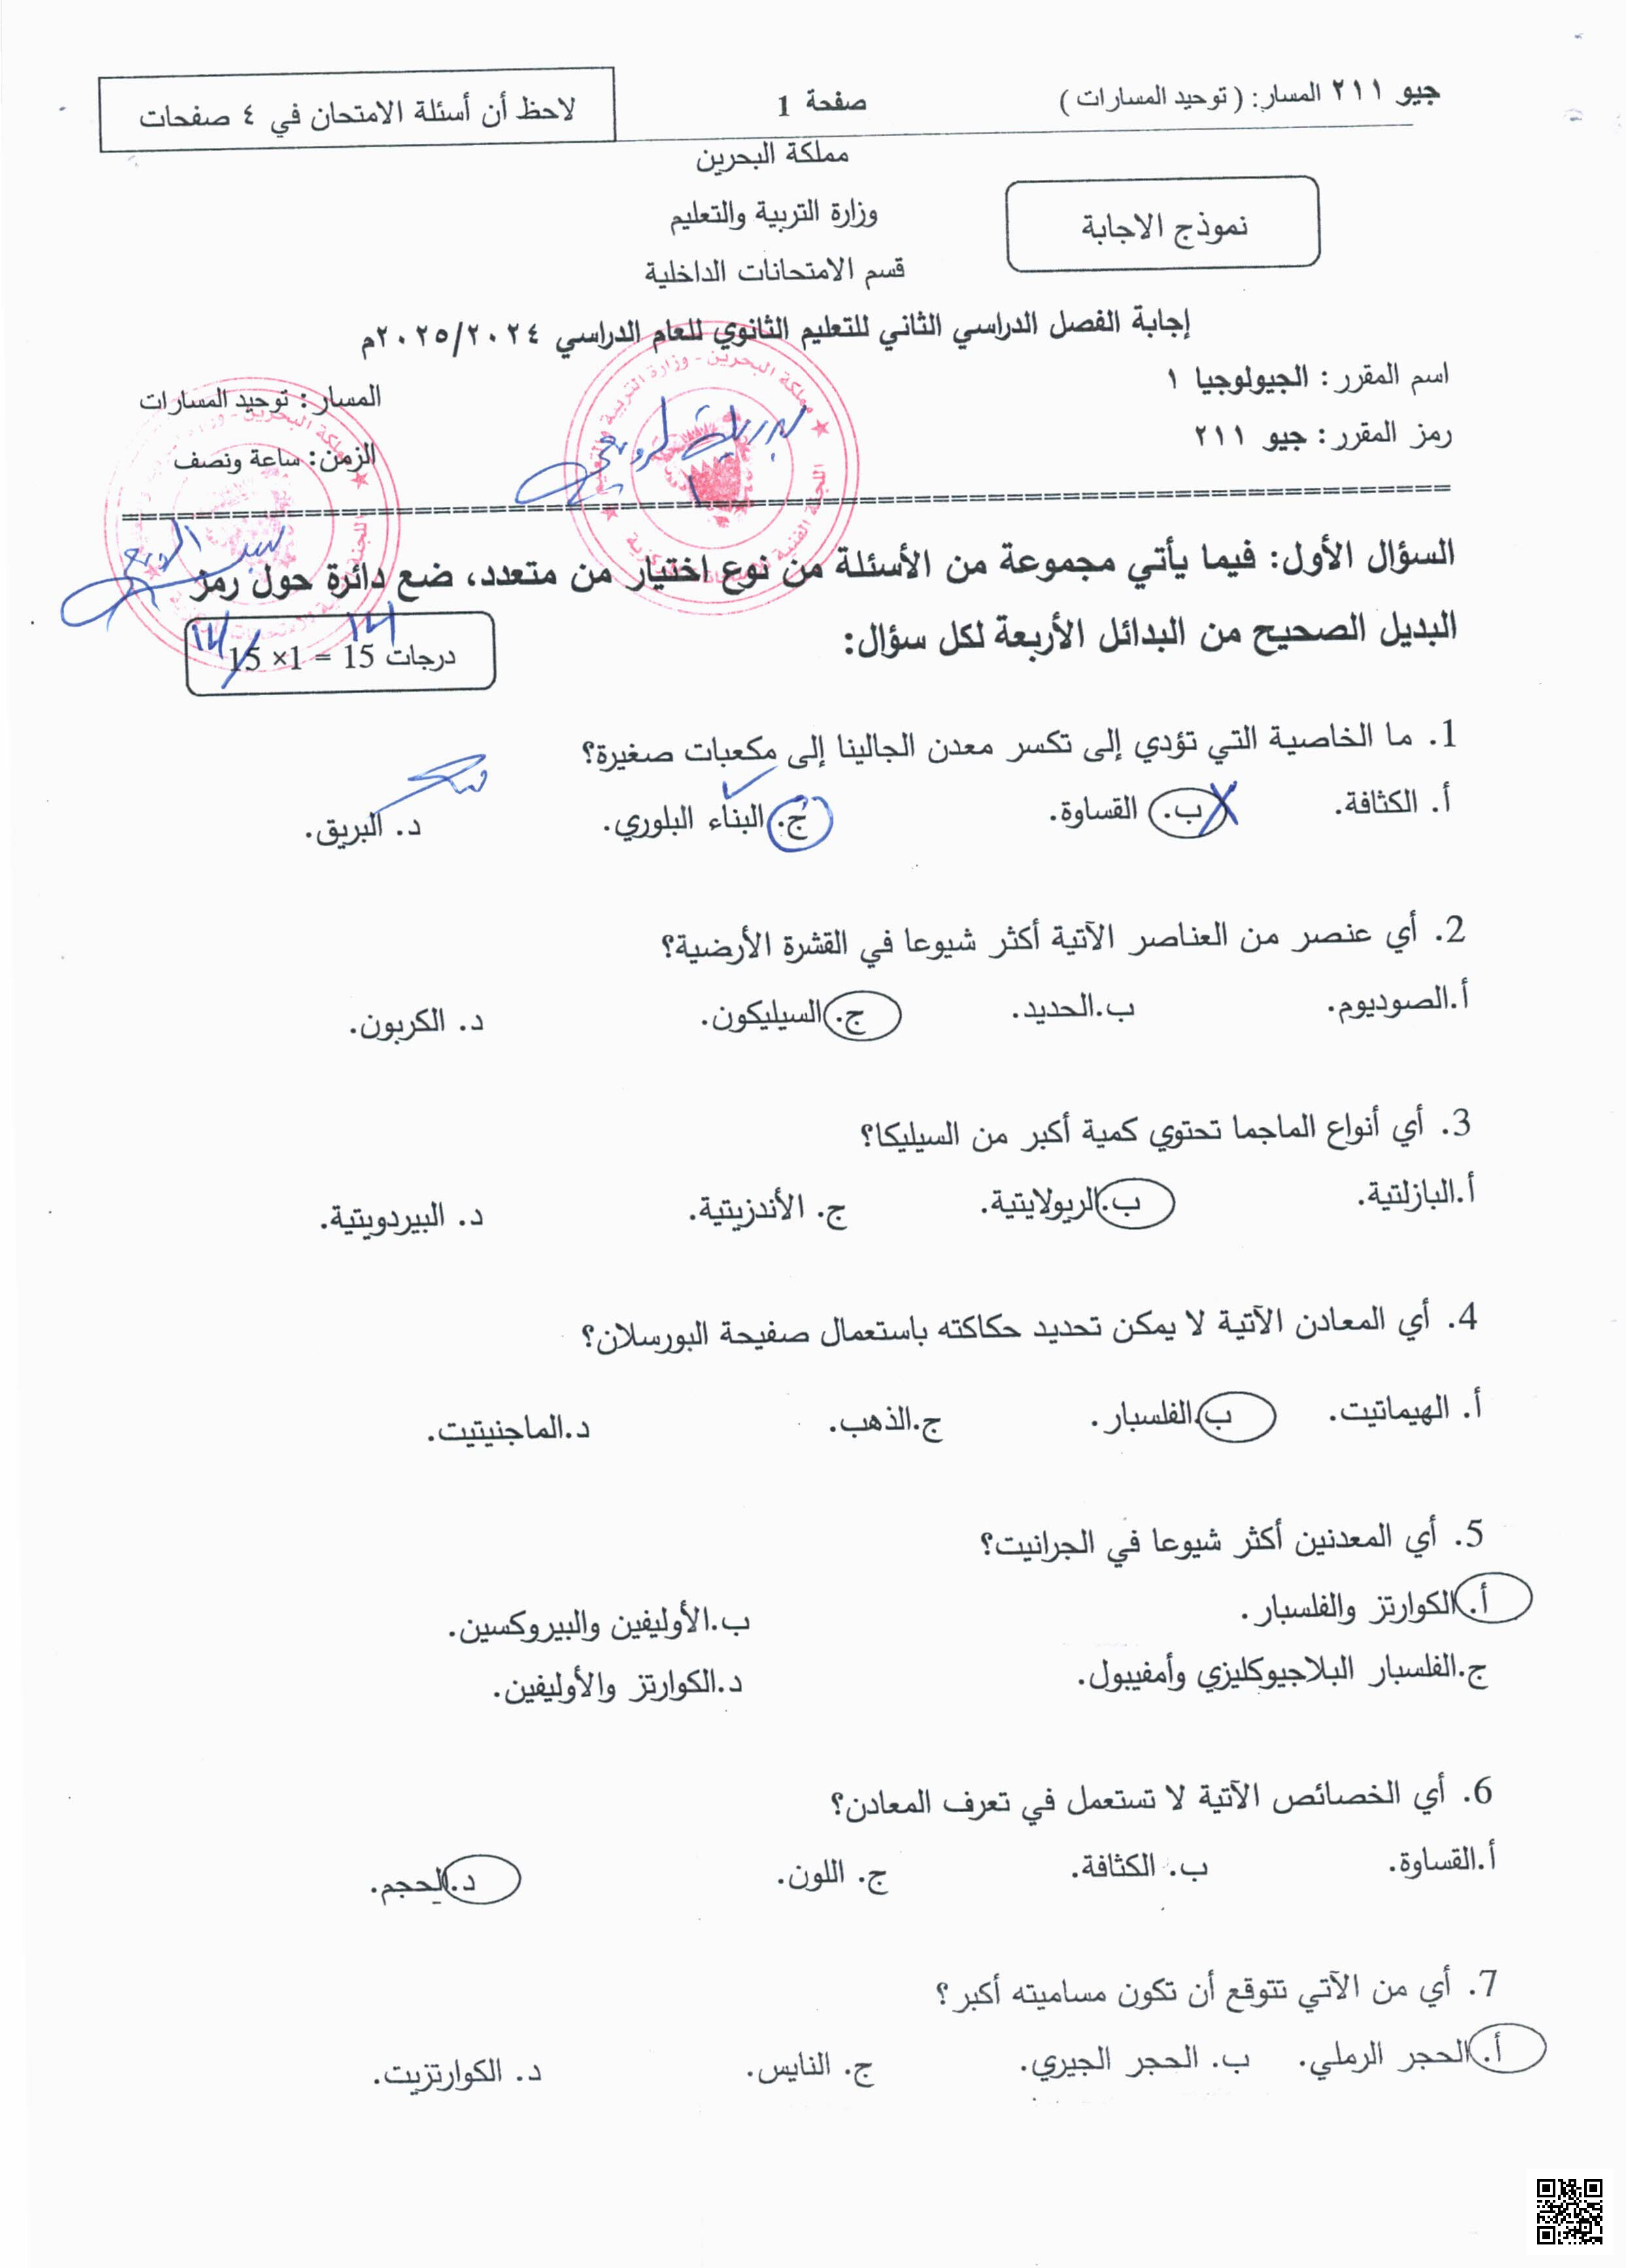 جيو ٢١١ المسار: ( توحيد المسارات )
صفحة 1
لاحظ أن أسئلة الامتحان في ٤ صفحات
مملكة البحرين
وزارة التربية والتعليم
قسم الامتحانات الداخلية
نموذج الاجابة
إجابة الفصل الدراسي الثاني للتعليم الثانوي للعام الدراسي ٢٠٢٥/٢٠٢٤م
اسم المقرر: الجيولوجيا ١
المسار: توحيد المسارات
رمز المقرر: جيو ٢١١
الزمن: ساعة ونصف
السؤال الأول: فيما يأتي مجموعة من الأسئلة من نوع اختيار من متعدد، ضع دائرة حول رمز
البديل الصحيح من البدائل الأربعة لكل سؤال:
15 ×1 = 15 درجات
1. ما الخاصية التي تؤدي إلى تكسر معدن الجالينا إلى مكعبات صغيرة؟
أ. الكثافة. ب. القساوة. ج. البناء البلوري. د. البريق.
2. أي عنصر من العناصر الآتية أكثر شيوعا في القشرة الأرضية؟
أ.الصوديوم. ب.الحديد. ج. السيليكون. د. الكربون.
3. أي أنواع الماجما تحتوي كمية أكبر من السيليكا؟
أ.البازلتية. ب.الريولايتية. ج. الأندزيتية. د. البيردويتية.
4. أي المعادن الآتية لا يمكن تحديد حكاكته باستعمال صفيحة البورسلان؟
أ. الهيماتيت. ب.الفلسبار. ج.الذهب. د.الماجنيتيت.
5. أي المعدنين أكثر شيوعا في الجرانيت؟
أ. الكوارتز والفلسبار. ب.الأوليفين والبيروكسين.
ج.الفلسبار البلاجيوكليزي وأمفيبول. د.الكوارتز والأوليفين.
6. أي الخصائص الآتية لا تستعمل في تعرف المعادن؟
أ.القساوة. ب. الكثافة. ج. اللون. د.الحجم.
7. أي من الآتي تتوقع أن تكون مساميته أكبر؟
أ. الحجر الرملي. ب. الحجر الجيري. ج. النايس. د. الكوارتزيت.